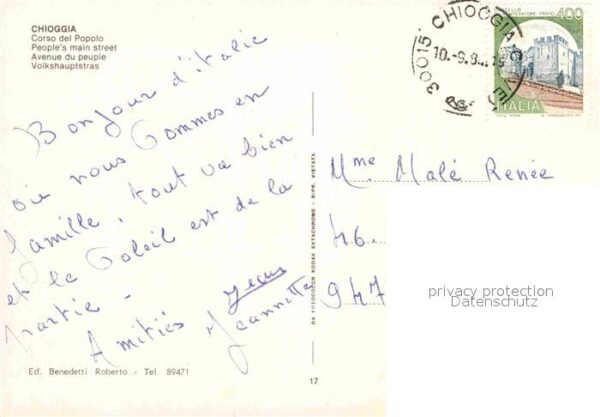 CHIOGGIA
Corso del Popolo
People's main street
Avenue du peuple
Volkshauptstras
Bonjour d'italie
où nous sommes en
famille, tout va bien
et le Soleil est de la
partie -
Amitiés Jean
Jeannette
Ed. Benedetti Roberto - Tel 89471
17
DA FOTOCOLOR KODAK EKTACHROME - RIPR. VIETATA
30015 CHIOGGIA
10.-9.9
400
ITALIA
Mme Malé Renée
46.
947
privacy protection
Datenschutz